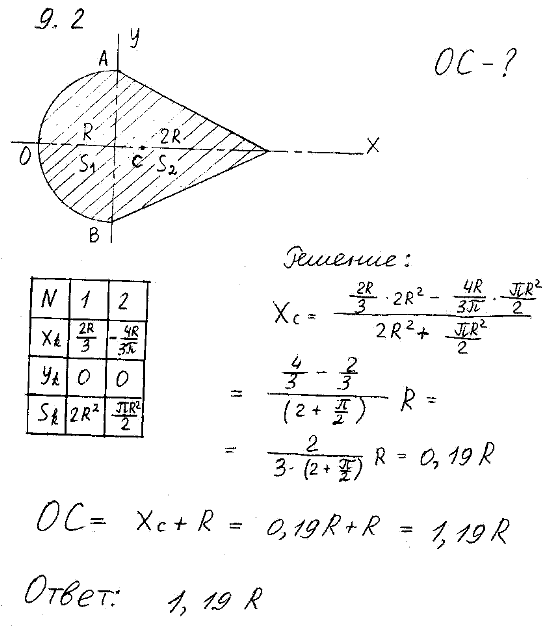 9.2
OC - ?
y
A
R
2R
O
C
x
S₁
S₂
B
Решение:
N 1 2
Xk 2R/3 -4R/3π
Yk 0 0
Sk 2R² πR²/2
Xc = (2R/3 · 2R² - 4R/3π · πR²/2) / (2R² + πR²/2)
= (4/3 - 2/3) / (2 + π/2) R =
= 2 / (3·(2 + π/2)) R = 0,19 R
OC = Xc + R = 0,19R + R = 1,19R
Ответ: 1,19 R